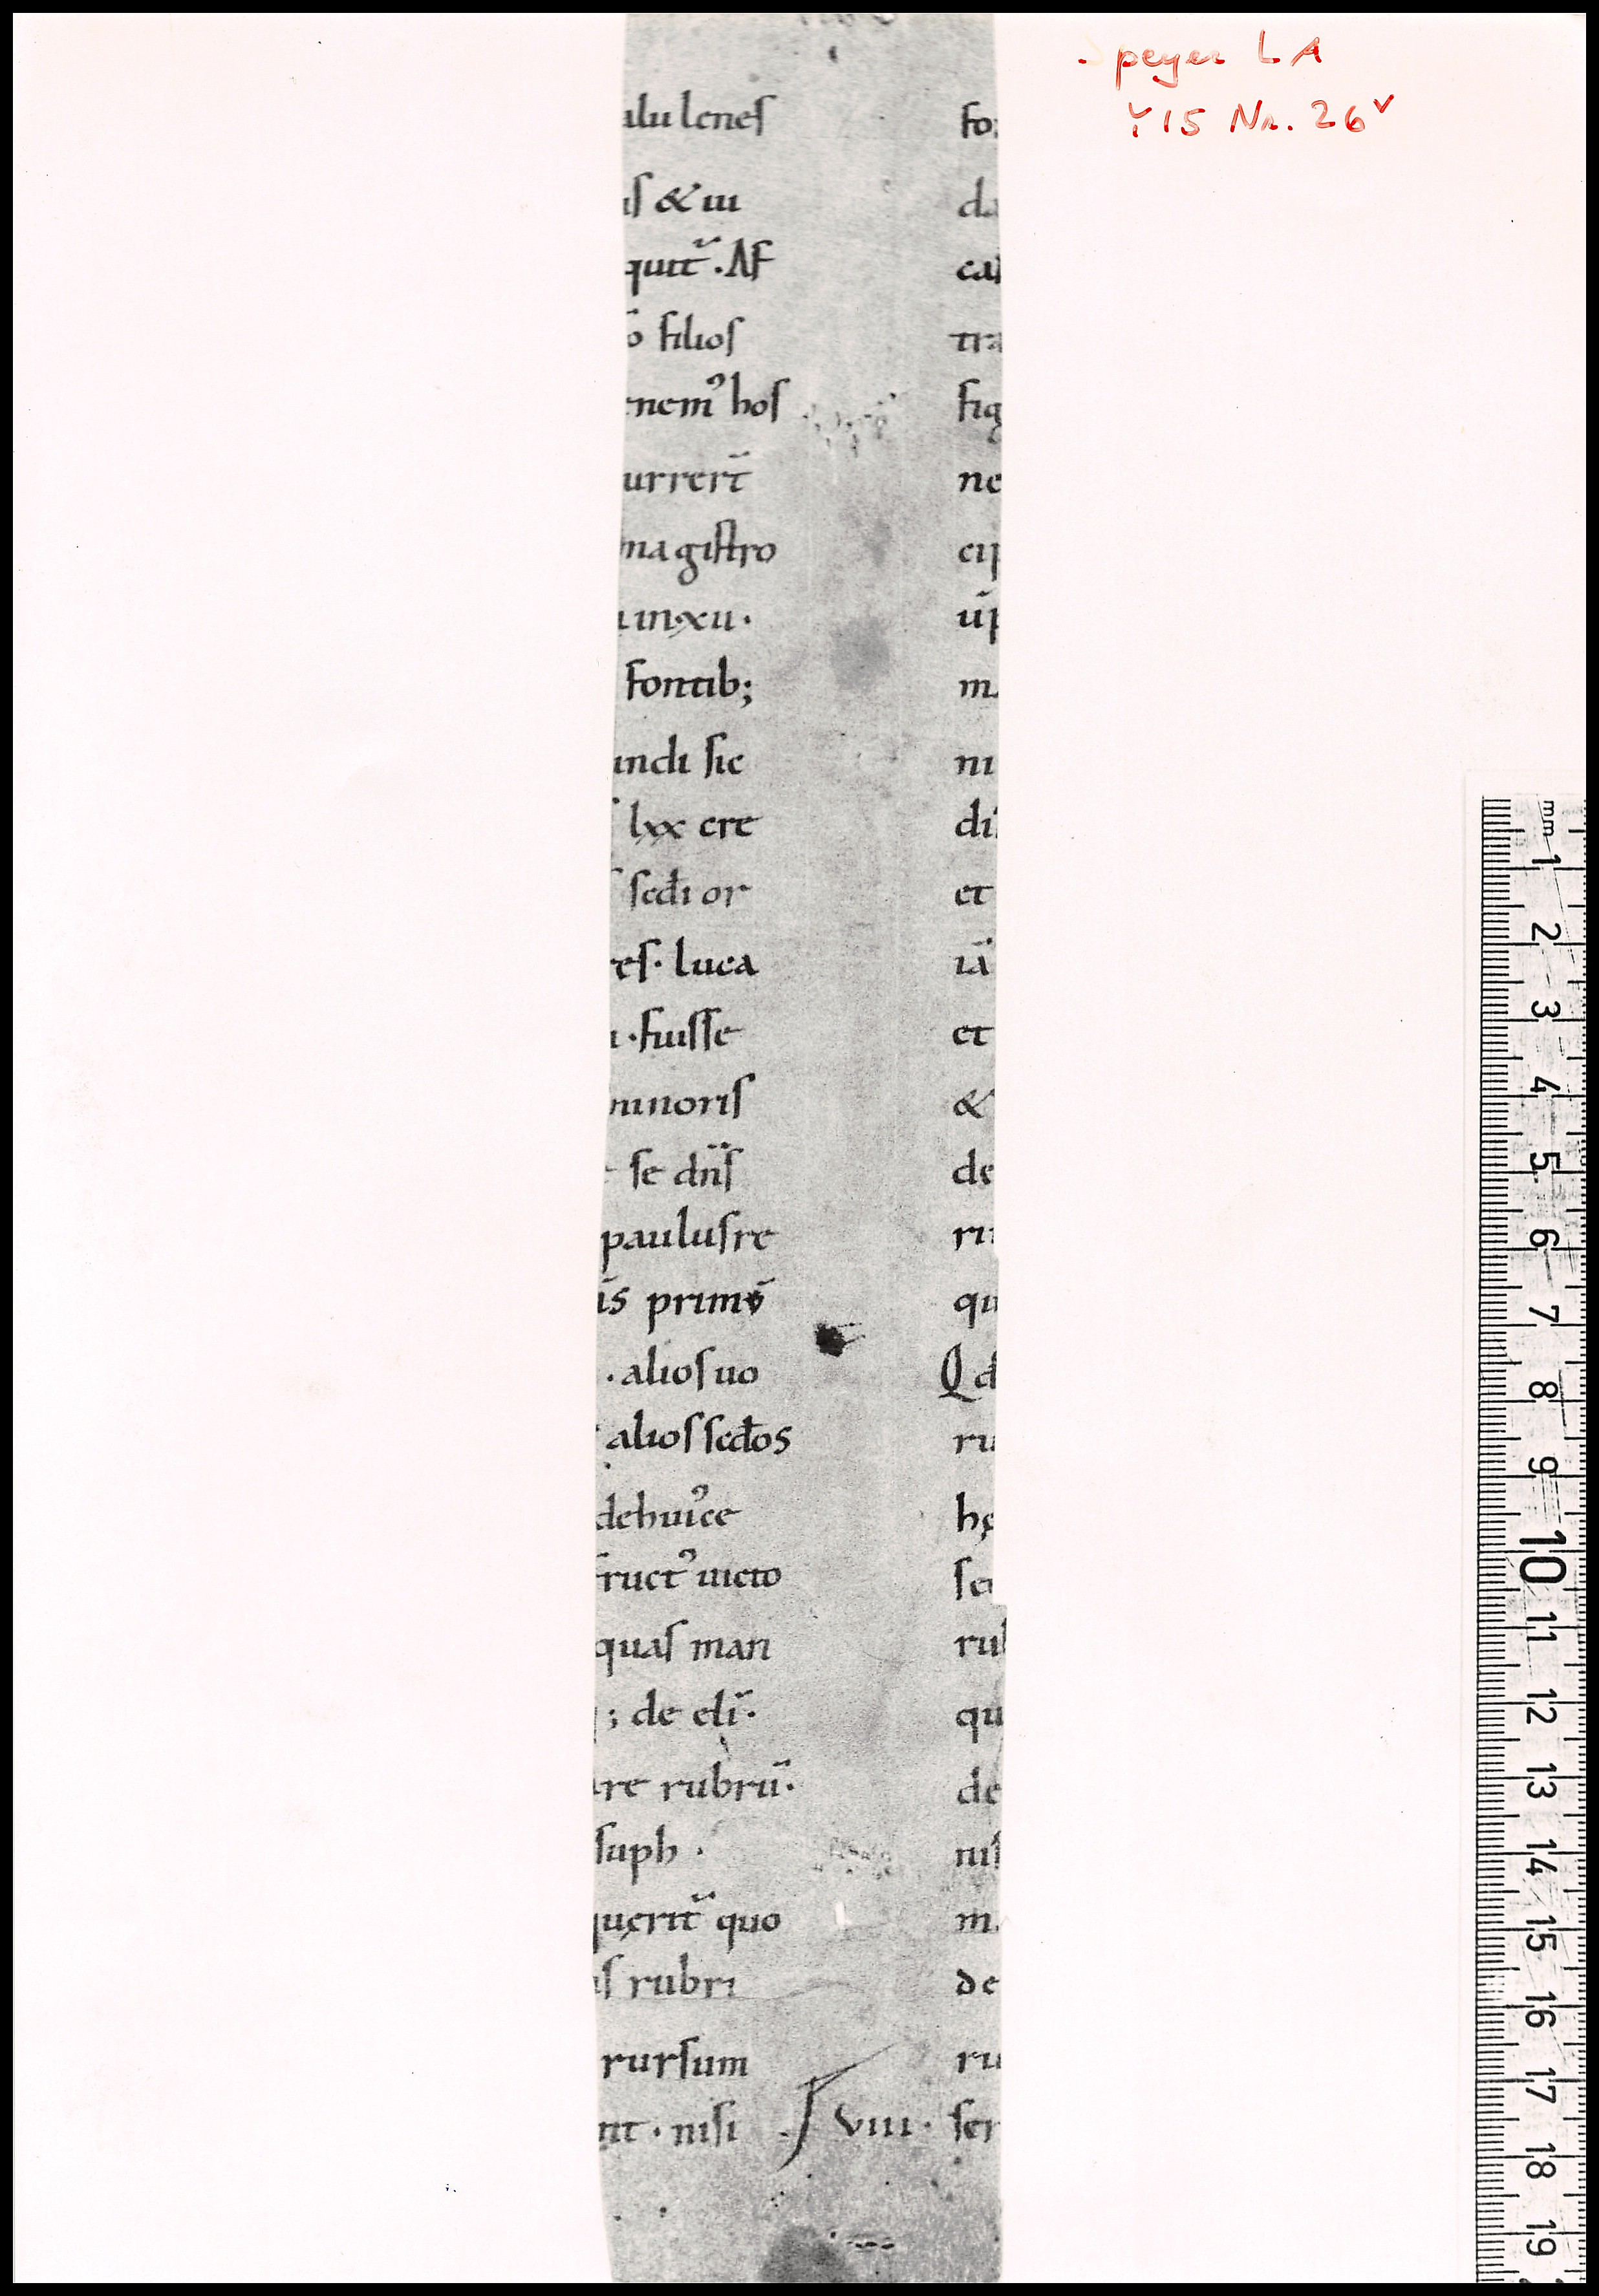 Speyer LA
Y 15 Nr. 26v
ulu lenes
is & iii
quit̄ . Af
ō filios
enemꝰ hos
urrert̄
magistro
in xii .
fontib;
undi sic
lxx ere
secđi or
es . luca
. fuisse
minoris
se dn̄s
paulus re
is primō
. alios uo
alios secđos
dehuiꝰce
fructꝰ uicto
quas man
; de eli̅ .
re rubrū .
saph .
quęrit̄ quo
is rubri
rursum
nt . nisi
fo
da
ca
tra
fig
ne
cip
up̄
m
ni
di
et
iā
et
&
de
ri
qu
Q d
ru
hę
sc
rub
qu
de
ni
m
de
ru
VIII . ser
mm 1 2 3 4 5 6 7 8 9 10 11 12 13 14 15 16 17 18 19